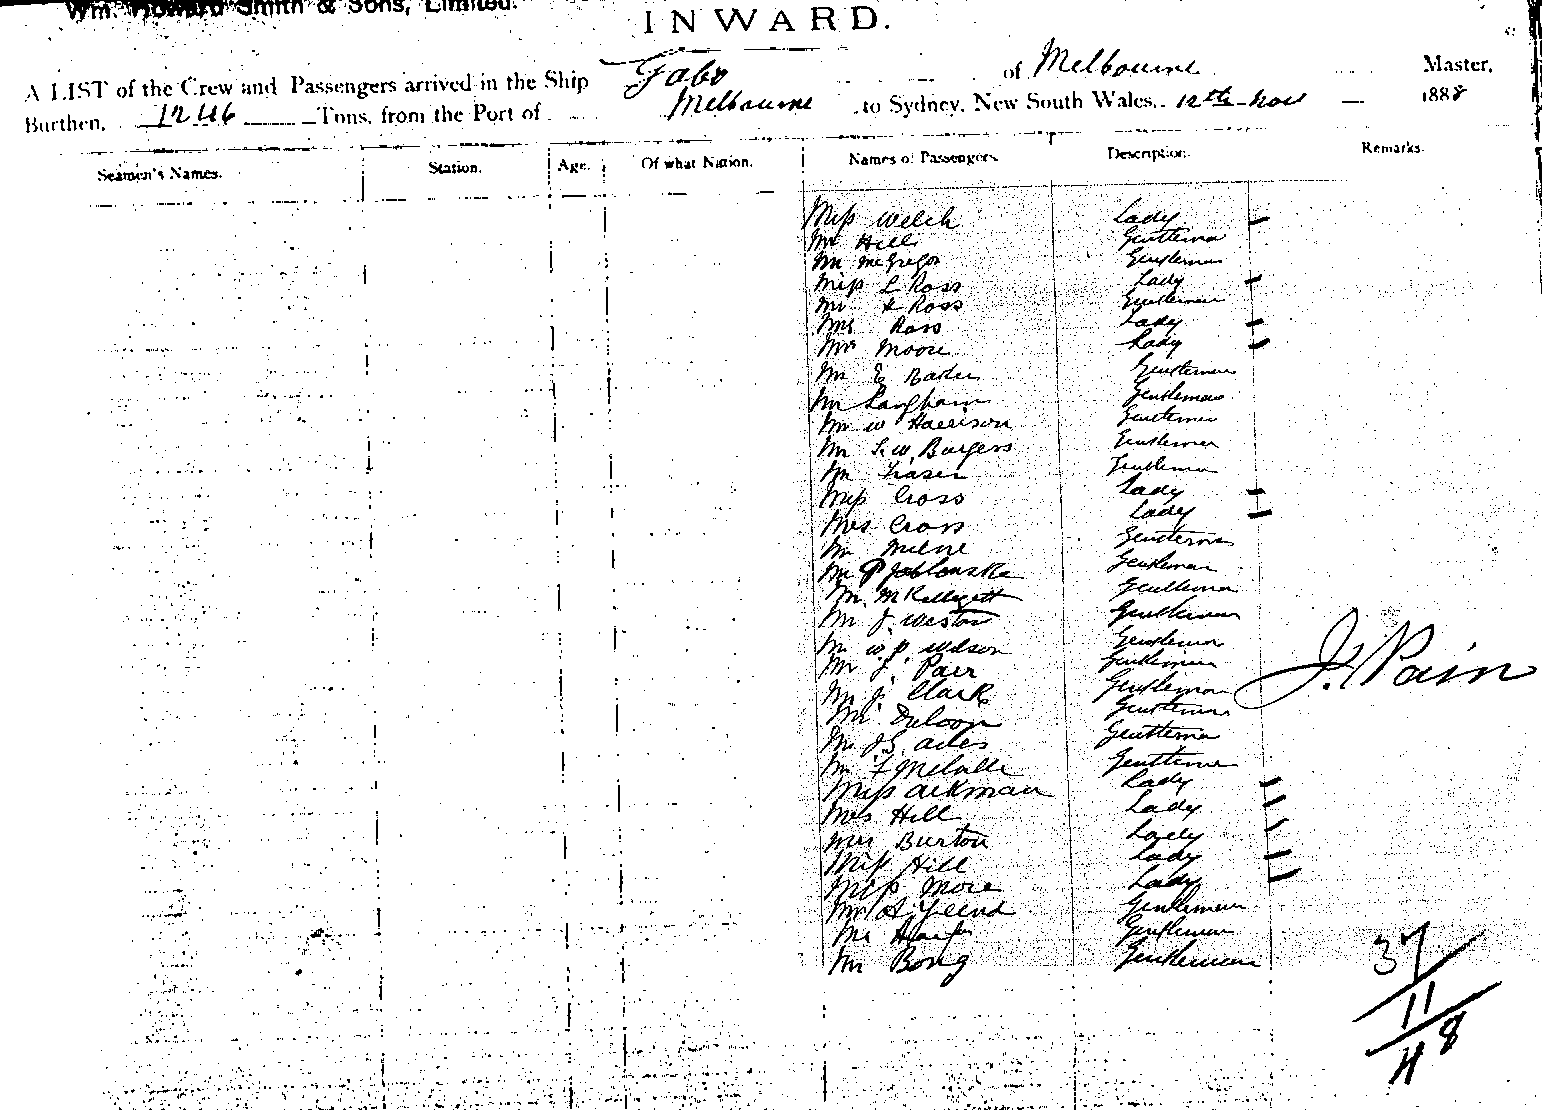 Wm. Howard Smith & Sons, Limited.
INWARD.
A LIST of the Crew and Passengers arrived in the Ship Gabo of Melbourne Master,
Burthen, 1246 Tons, from the Port of Melbourne to Sydney, New South Wales, 12th Nov 1888
Seamen's Names. Station. Age. Of what Nation. Names of Passengers. Description. Remarks.
Miss Welch Lady
Mr Hill Gentleman
Mr McGregor Gentleman
Miss L Ross Lady
Mr Ross Gentleman
Mrs Ross Lady
Mrs Moore Lady
Mr E Gentleman
Mr Langham Gentleman
Mr W Harrison Gentleman
Mr Burgess Gentleman
Mr Fraser Gentleman
Miss Cross Lady
Mrs Cross Lady
Mr Milne Gentleman
Mr P Jablonske Gentleman
Mr Gentleman
Mr J Weston Gentleman
Mr W P Wilson Gentleman
Mr J. Parr Gentleman
Mr J. Clark Gentleman
Mr Gentleman
Mr Gentleman
Mr F Melville Gentleman
Miss Aikman Lady
Mrs Hill Lady
Mrs Burton Lady
Miss Hill Lady
Miss More Lady
Mr A. Yeend Gentleman
Mr Gentleman
Mr Bong Gentleman
J. Pain
37
11
48